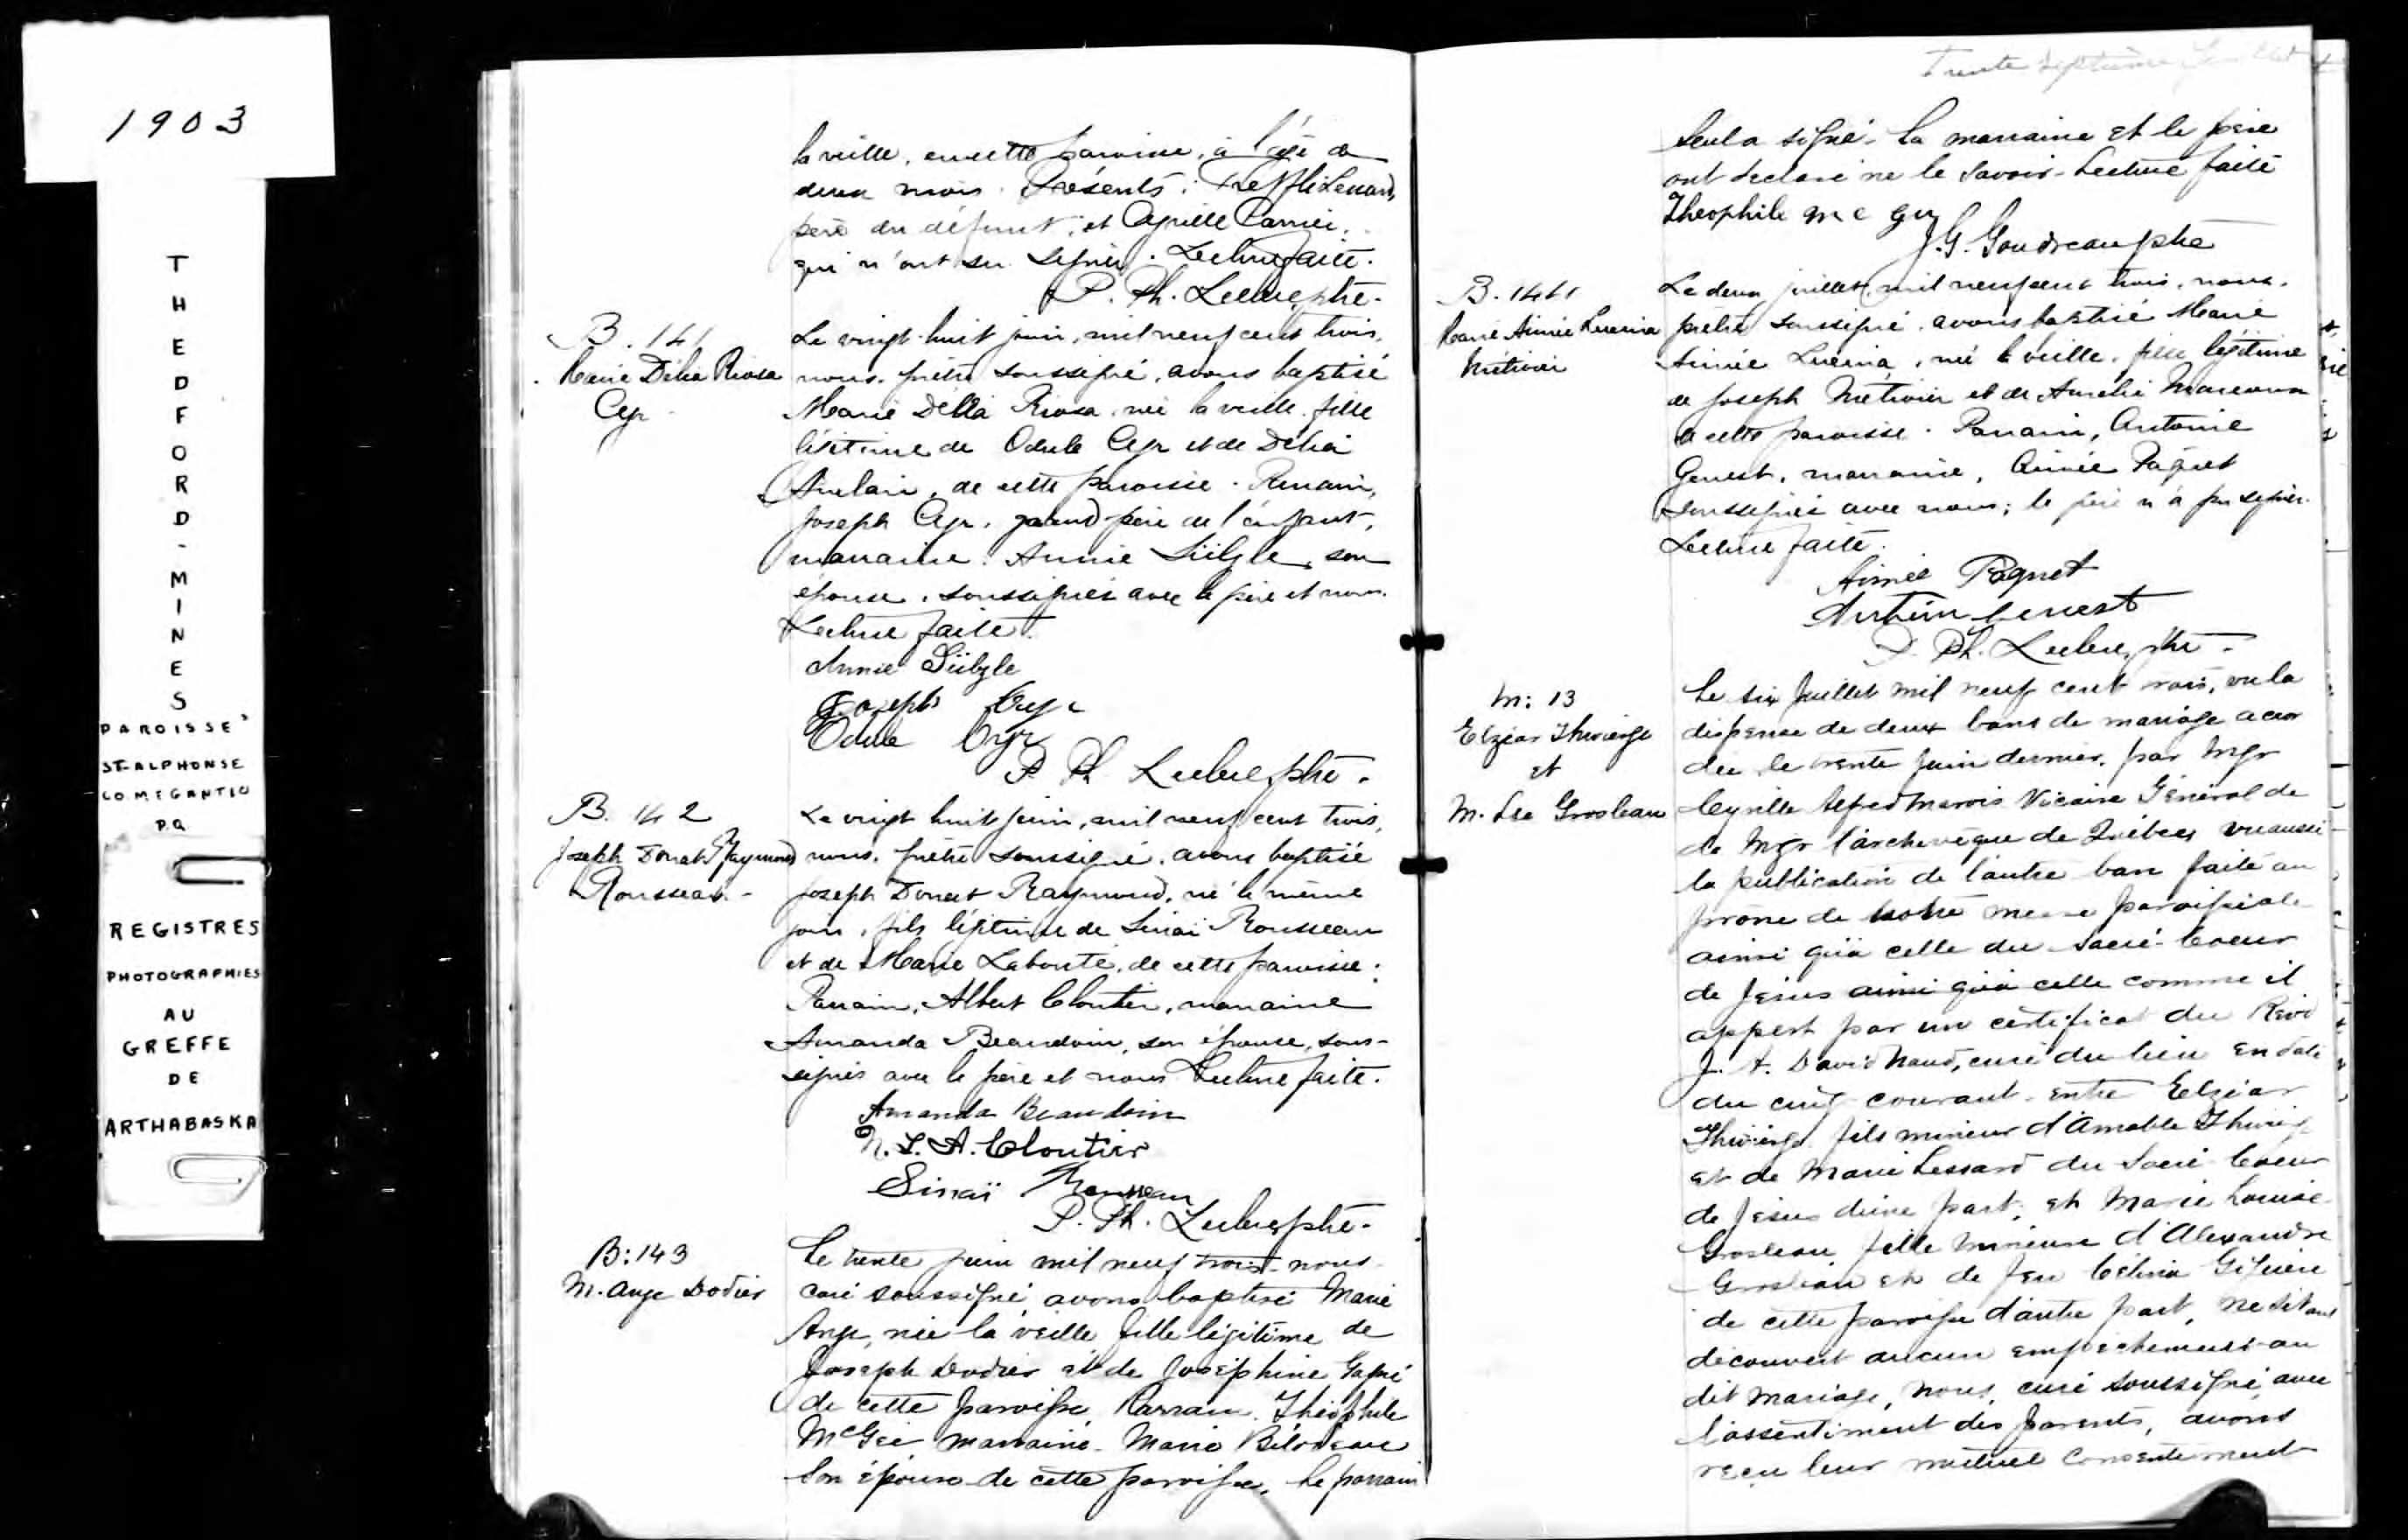 1903
THEDFORD-MINES
PAROISSE
ST-ALPHONSE
CO. MEGANTIC
P.Q.
REGISTRES
PHOTOGRAPHIES
AU
GREFFE
DE
ARTHABASKA
la veille, en cette paroisse, à l'âge de
deux mois. Présents:
père du défunt, et Cyrille
qui n'ont su signer. Lecture faite.
P. Ph. Leclerc, ptre.
B. 141
Marie Délia Riosa
Cyr
Le vingt-huit juin, mil neuf cent trois,
nous, prêtre soussigné, avons baptisé
Marie Délia Riosa, née la veille, fille
légitime de Odule Cyr et de Délia
de cette paroisse. Parrain,
Joseph Cyr, grand-père de l'enfant,
marraine, Annie son
épouse, soussignés avec le père et nous.
Lecture faite.
Annie
Joseph Cyr
Odule Cyr
P. Ph. Leclerc, ptre.
B. 142
Joseph Donat Raymond
Rousseau
Le vingt huit juin, mil neuf cent trois,
nous, prêtre soussigné, avons baptisé
Joseph Donat Raymond, né le même
jour, fils légitime de Sinaï Rousseau
et de Marie Labonté, de cette paroisse.
Parrain, Albert Cloutier, marraine
Amanda Beaudoin, son épouse, sous-
signés avec le père et nous. Lecture faite.
Amanda Beaudoin
N. L. A. Cloutier
Sinaï Rousseau
P. Ph. Leclerc, ptre.
B: 143
M. Ange Dodier
Le trente juin mil neuf trois nous
curé soussigné avons baptisé Marie
Ange, née la veille fille légitime de
Joseph Dodier et de Joséphine Gagné
de cette paroisse Parrain. Théophile
McGee marraine Marie Bilodeau
son épouse de cette paroisse. Le parrain
Trente septième feuillet
seul a signé. La marraine et le père
ont déclaré ne le savoir. Lecture faite
Theophile Mc Gee
J. G. Goudreau ptre
B. 144
Marie Aimée Lucina
Métivier
Le deux juillet, mil neuf cent trois, nous,
prêtre soussigné, avons baptisé Marie
Aimée Lucina, née la veille, fille légitime
de Joseph Métivier et de Amélie Marcoux
de cette paroisse. Parrain, Antoine
Genest, marraine, Aimée Paquet
soussignés avec nous; le père n'a pu signer.
Lecture faite.
Aimée Paquet
Genest
P. Ph. Leclerc, ptre.
M: 13
Elzéar Thivierge
et
M. Lse Grosleau
Le six Juillet mil neuf cent trois, vu la
dispense de deux bans de mariage accor
dée le trente Juin dernier, par Mgr
Cyrille Alfred Marois Vicaire Général de
de Mgr l'archevêque de Québec, vu aussi
la publication de l'autre ban faite au
prône de notre messe paroissiale
ainsi qu'à celle du Sacré-Coeur
de Jésus ainsi qu'à celle comme il
appert par un certificat du Révd
J. A. David Naud, curé du lieu en date
du cinq courant entre Elzéar
Thivierge fils mineur d'Amable Thivierge
et de Marie Lessard du Sacré Coeur
de Jésus d'une part; et Marie Louise
Grosleau fille mineure d'Alexandre
Grosleau et de feu Célina Giguère
de cette paroisse d'autre part, ne s'étant
découvert aucun empêchement au
dit mariage, nous, curé soussigné, avec
l'assentiment des parents, avons
reçu leur mutuel consentement